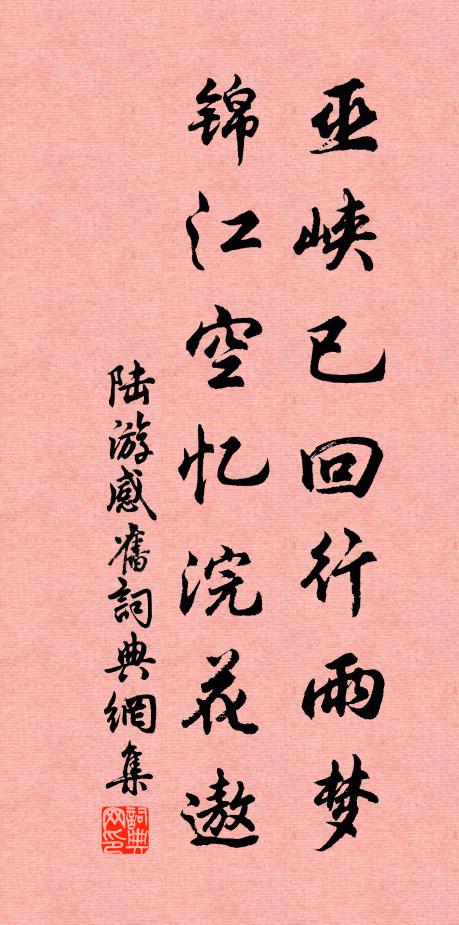 巫峡已回行雨梦
锦江空忆浣花遨
陆游感舊詞典網集
詞典网印